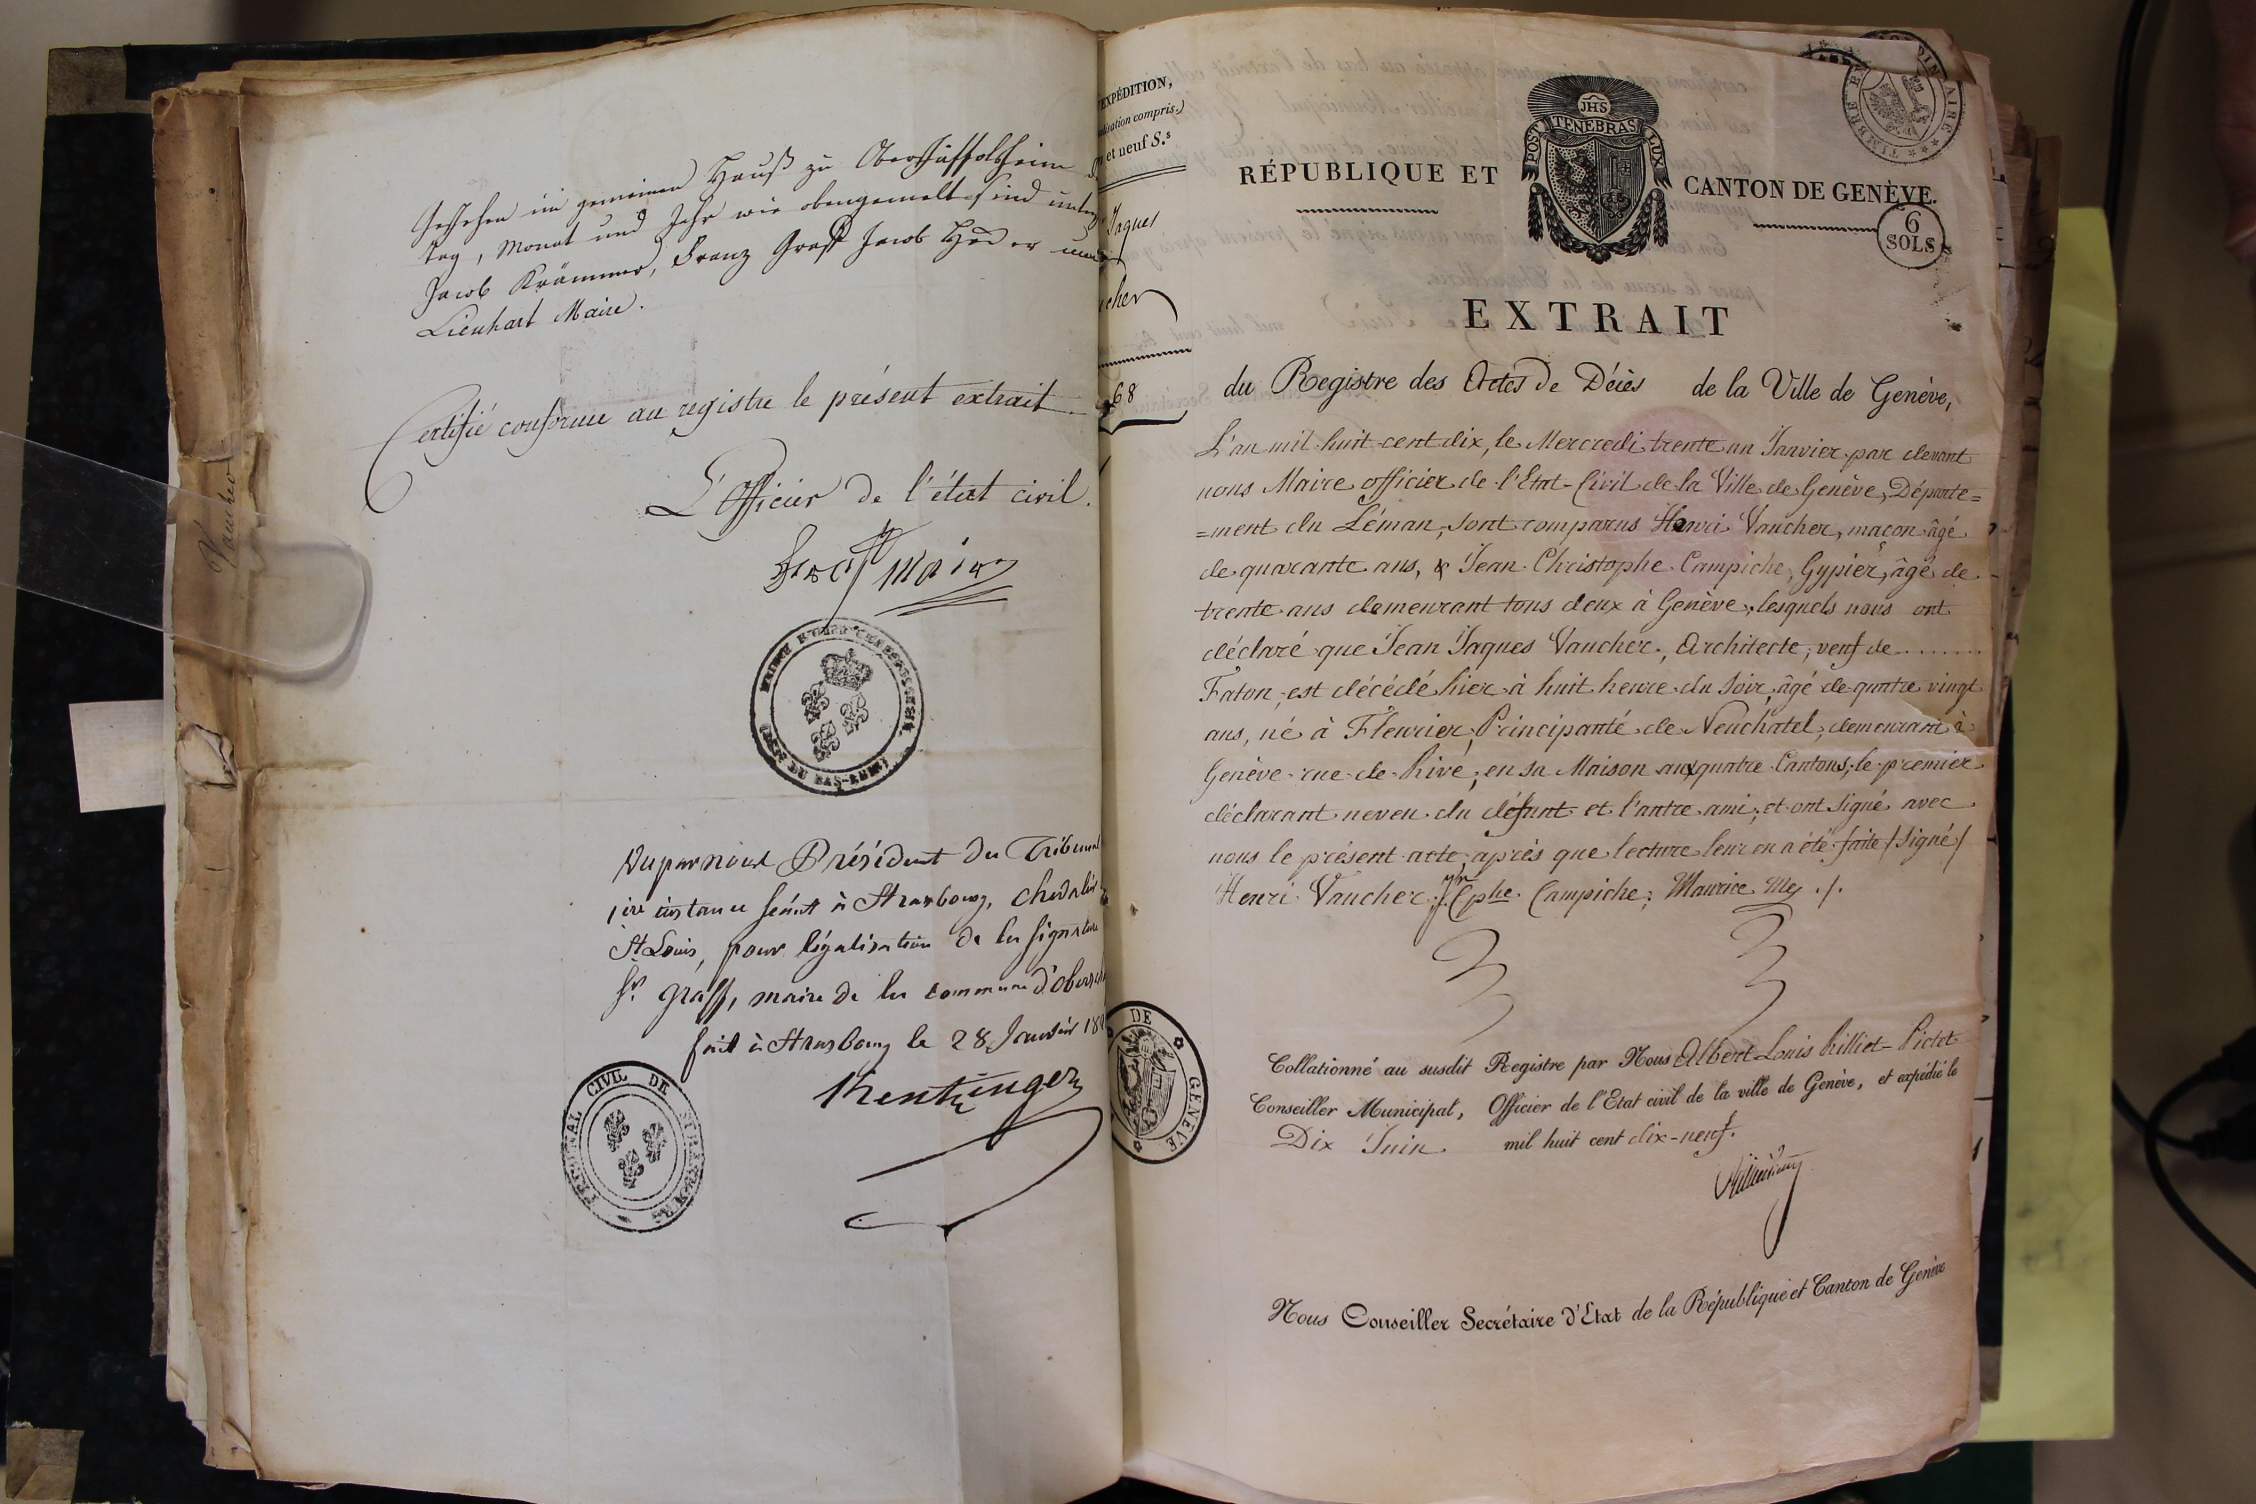 Geschehen im gemeinen Hauß zu Oberschäffolsheim
Tag, Monat und Jahr wie obengemelt sind unterz.
Jacob Krämmer, Franz Graff Jacob und
Lienhart Maire.
Certifié conforme au registre le présent extrait.
L'Officier de l'état civil.
Graff Maire
MAIRIE
DÉPT DU BAS-RHIN
Vu par nous Président du Tribunal
1ère instance séant à Strasbourg, chevalier
St Louis, pour légalisation de la signature
Sr. Graff, maire de la commune d'Obers
fait à Strasbourg le 28 Janvier 18
Kentzinger
TRIBUNAL CIVIL DE STRASBOURG
Vaucher
EXPÉDITION,
lisation compris.)
et neuf S.s
Jaques
ucher
68
DE GENÈVE
RÉPUBLIQUE ET
CANTON DE GENÈVE.
JHS
POST TENEBRAS LUX
TIMBRE EXTRAORDINAIRE
6
SOLS
EXTRAIT
du Registre des Actes de Décès de la Ville de Genève,
L'an mil huit cent dix, le Mercredi trente un Janvier par devant
nous Maire officier de l'Etat-Civil de la Ville de Genève, Départe=
=ment du Léman, sont comparus Henri Vaucher, maçon âgé
de quarante ans, & Jean Christophe Campiche, Gypier, âgé de
trente ans demeurant tous deux à Genève, lesquels nous ont
déclaré que Jean Jaques Vaucher, Architecte, veuf de ........
Faton, est décédé hier à huit heure du soir, âgé de quatre vingt
ans, né à Fleurier, Principauté de Neuchatel, demeurant à
Genève rue de Rive, en sa Maison aux quatre Cantons, le premier
déclarant neveu du défunt et l'autre ami, et ont signé avec
nous le présent acte, après que lecture leur en a été faite /signé/
Henri Vaucher, Jn Cphe Campiche, Maurice Me ./.
Collationné au susdit Registre par Nous Albert Louis Rilliet-Pictet
Conseiller Municipal, Officier de l'Etat civil de la ville de Genève, et expédié le
Dix Juin mil huit cent dix-neuf.
Nous Conseiller Secrétaire d'Etat de la République et Canton de Genève